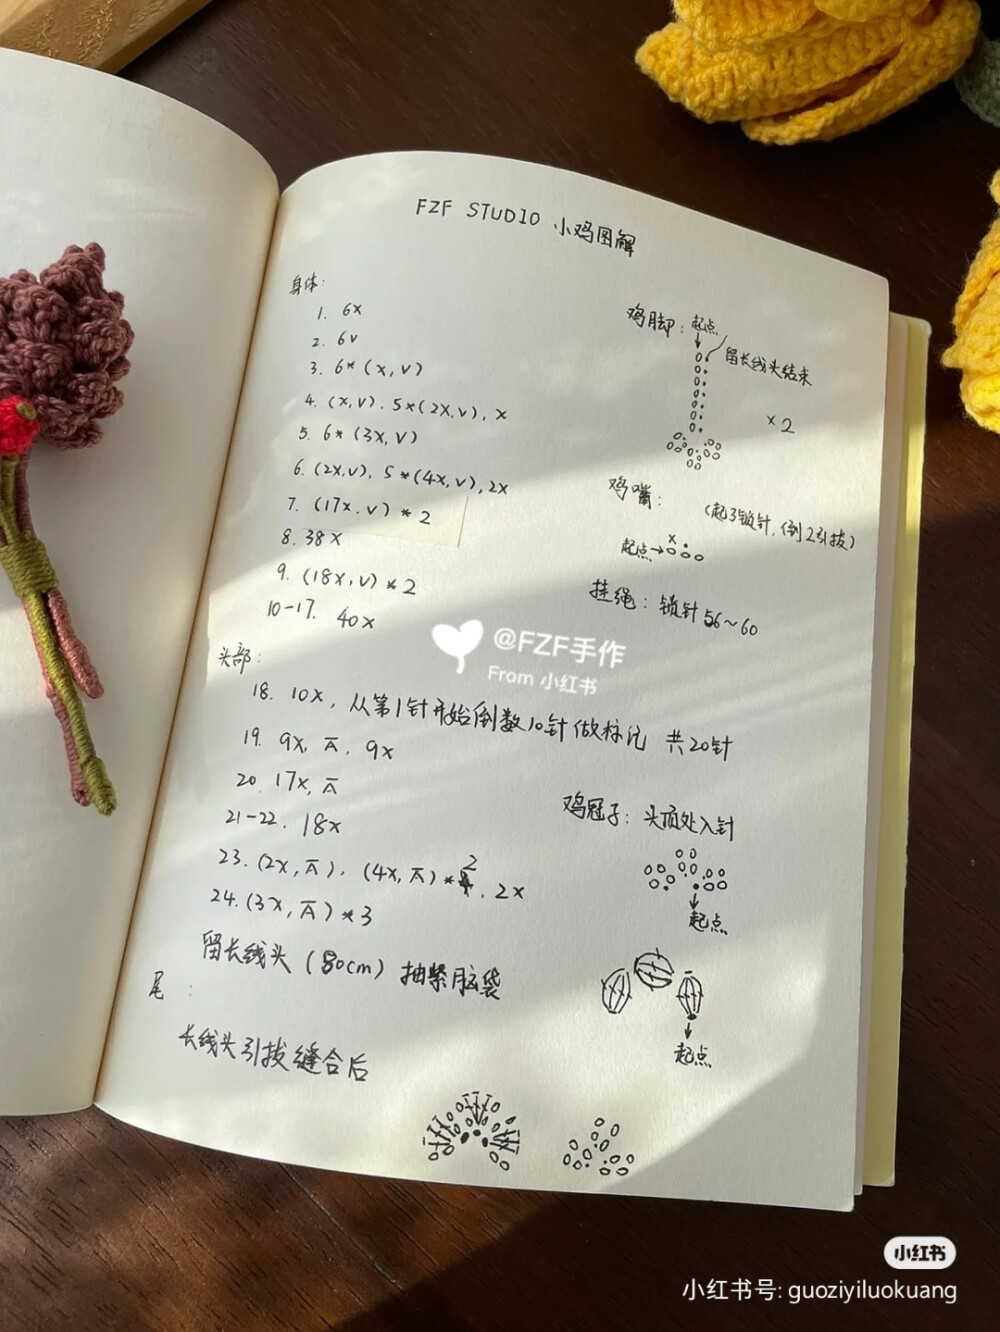 FZF STUDIO 小鸡图解
身体:
1. 6x
2. 6v
3. 6*(x,v)
4. (x,v),5*(2x,v),x
5. 6*(3x,v)
6. (2x,v),5*(4x,v),2x
7. (17x.v)*2
8. 38x
9. (18x,v)*2
10-17. 40x
头部:
18. 10x,从第1针开始倒数10针做标记 共20针
19. 9x,A̅,9x
20. 17x,A̅
21-22. 18x
23. (2x,A̅),(4x,A̅)*2,2x
24. (3x,A̅)*3
留长线头(80cm)抽紧脑袋
尾:
长线头引拔缝合后
鸡脚:起点
留长线头结束
x2
鸡嘴: (起3锁针,倒2引拔)
起点→ x
挂绳:锁针56~60
鸡冠子:头顶处入针
起点
起点
@FZF手作
From 小红书
小红书
小红书号: guoziyiluokuang